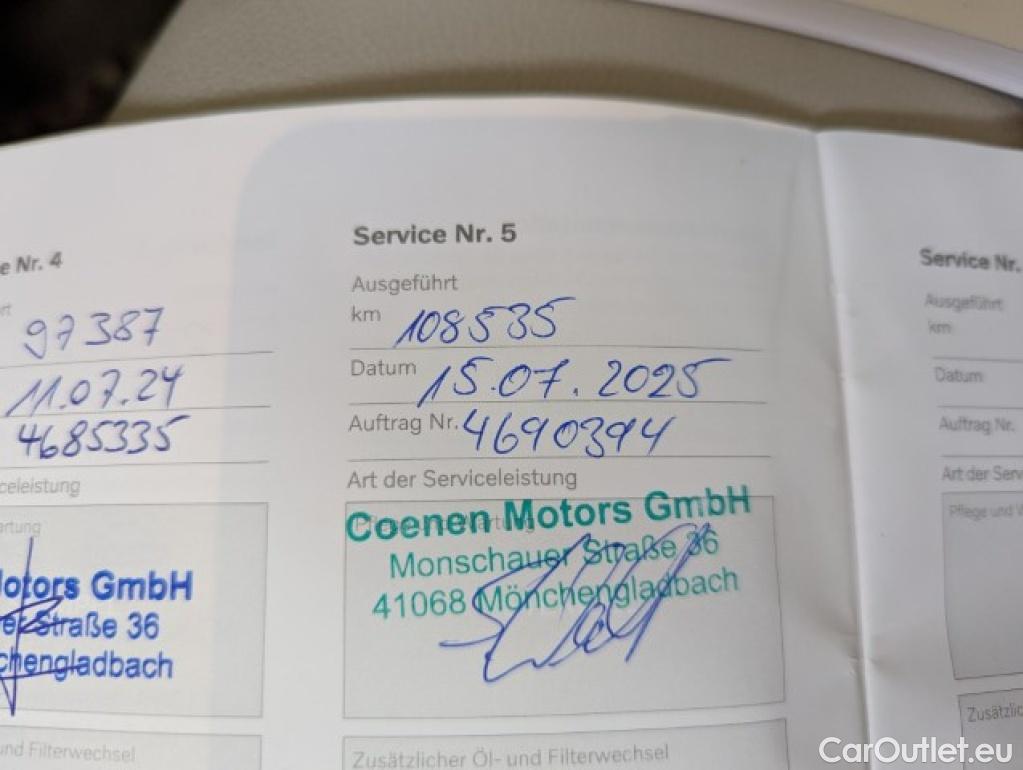 e Nr. 4
rt
97387
11.07.24
4685335
celeistung
artung
otors GmbH
er Straße 36
chengladbach
und Filterwechsel
Service Nr. 5
Ausgeführt
km 108535
Datum 15.07.2025
Auftrag Nr. 4690394
Art der Serviceleistung
Pflege und Wartung
Coenen Motors GmbH
Monschauer Straße 36
41068 Mönchengladbach
Zusätzlicher Öl- und Filterwechsel
Service Nr.
Ausgeführt
km
Datum
Auftrag Nr.
Art der Serv
Pflege und W
Zusätzlic
CarOutlet.eu